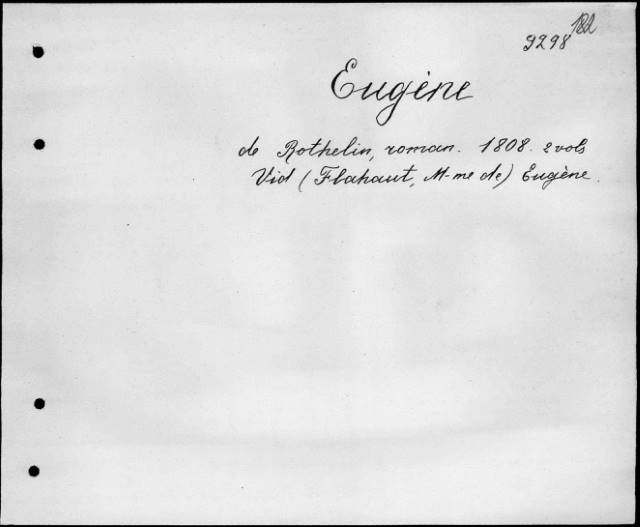 182
9298
Eugène
de Rothelin, roman. 1808. 2 vols
Vid (Flahaut, M-me de) Eugène.